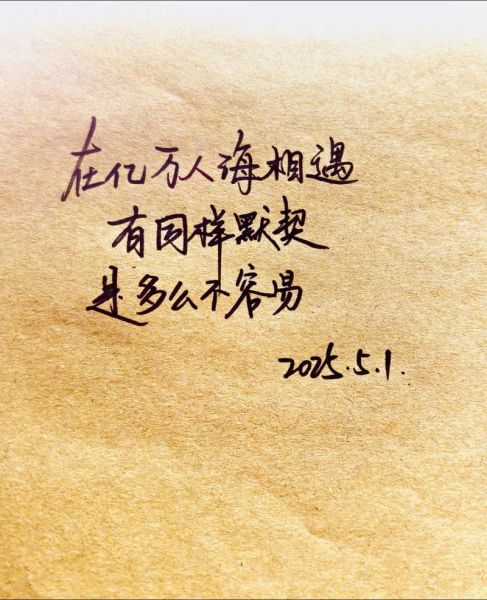 在亿万人海相遇
有同样默契
是多么不容易
2025.5.1.